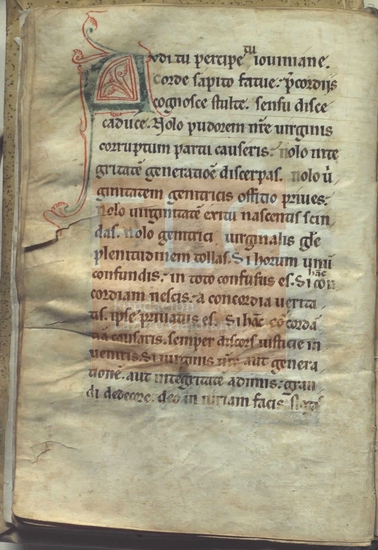 Audi tu percipe tu iouiniane.
Corde sapito fatue. p̄cordiis
cognosce stulte. sensu disce
caduce. Nolo pudorem nr̄e uirginis
corruptum partu causeris. Nolo inte
gritatē generatiōe discerpas. Nolo uir
ginitatem genitricis offitio priues.
Nolo uirginitatē exitu nascentis scin
das. Nolo genitrici uirginalis glē
plenitudinem tollas. Si horum unū
confundis. in toto confusus es. Si hanc con
cordiam nescis. a concordia uerita
tis. ipse priuatus es. Si hāc cōcordā
tiā causaris. semper discors iustície in
uentris. Si uirginis nr̄e aut genera
tionē. aut integritatē adimis. gran
di dedecore. deo iniuriam facis